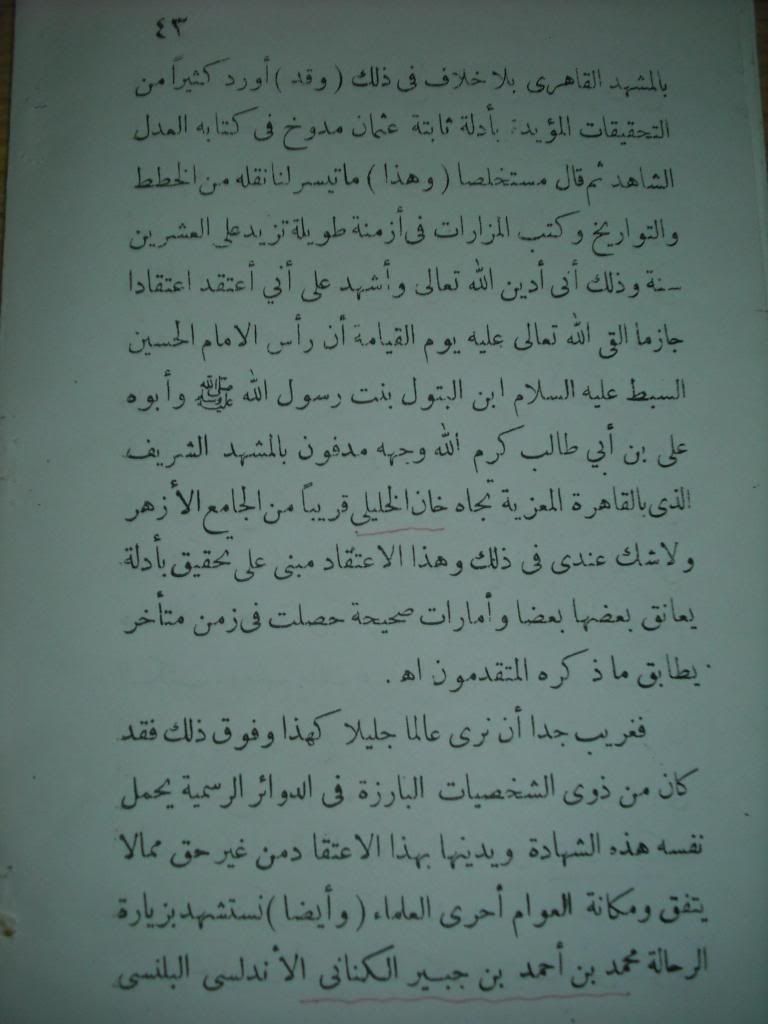 ٤٣
بالمشهد القاهرى بلا خلاف فى ذلك ( وقد ) أورد كثيراً من
التحقيقات المؤيدة بأدلة ثابتة عثمان مدوخ فى كتابه العدل
الشاهد ثم قال مستخلصا ( وهذا ) ماتيسر لنا نقله من الخطط
والتواريخ وكتب المزارات فى أزمنة طويلة تزيد على العشرين
سنة وذلك أنى أدين الله تعالى وأشهد على أني أعتقد اعتقادا
جازما القى الله تعالى عليه يوم القيامة أن رأس الامام الحسين
السبط عليه السلام ابن البتول بنت رسول الله ﷺ وأبوه
على بن أبي طالب كرم الله وجهه مدفون بالمشهد الشريف
الذى بالقاهرة المعزية تجاه خان الخليلي قريباً من الجامع الأزهر
ولاشك عندى فى ذلك وهذا الاعتقاد مبنى على تحقيق بأدلة
يعانق بعضها بعضا وأمارات صحيحة حصلت فى زمن متأخر
يطابق ماذكره المتقدمون اه .
فغريب جدا أن نرى عالما جليلا كهذا وفوق ذلك فقد
كان من ذوى الشخصيات البارزة فى الدوائر الرسمية يحمل
نفسه هذه الشهادة ويدينها بهذا الاعتقا دمن غير حق ممالا
يتفق ومكانة العوام أحرى العلماء ( وأيضا ) نستشهد بزيارة
الرحالة محمد بن أحمد بن جبير الكنانى الأندلسى البلنسى